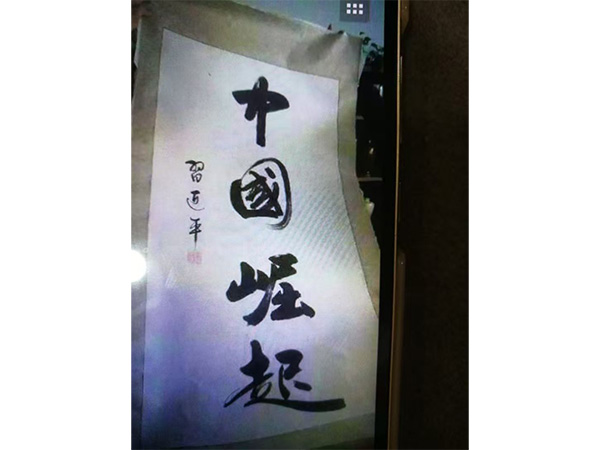 中國崛起
習近平